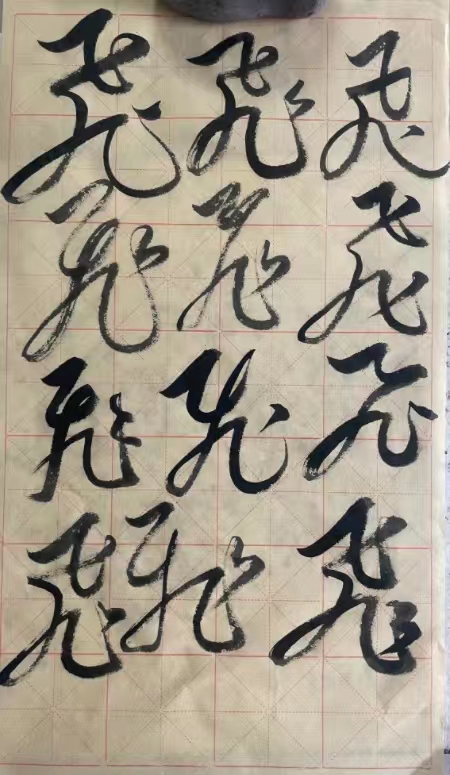 飛飛飛
飛飛飛
飛飛飛
飛飛飛